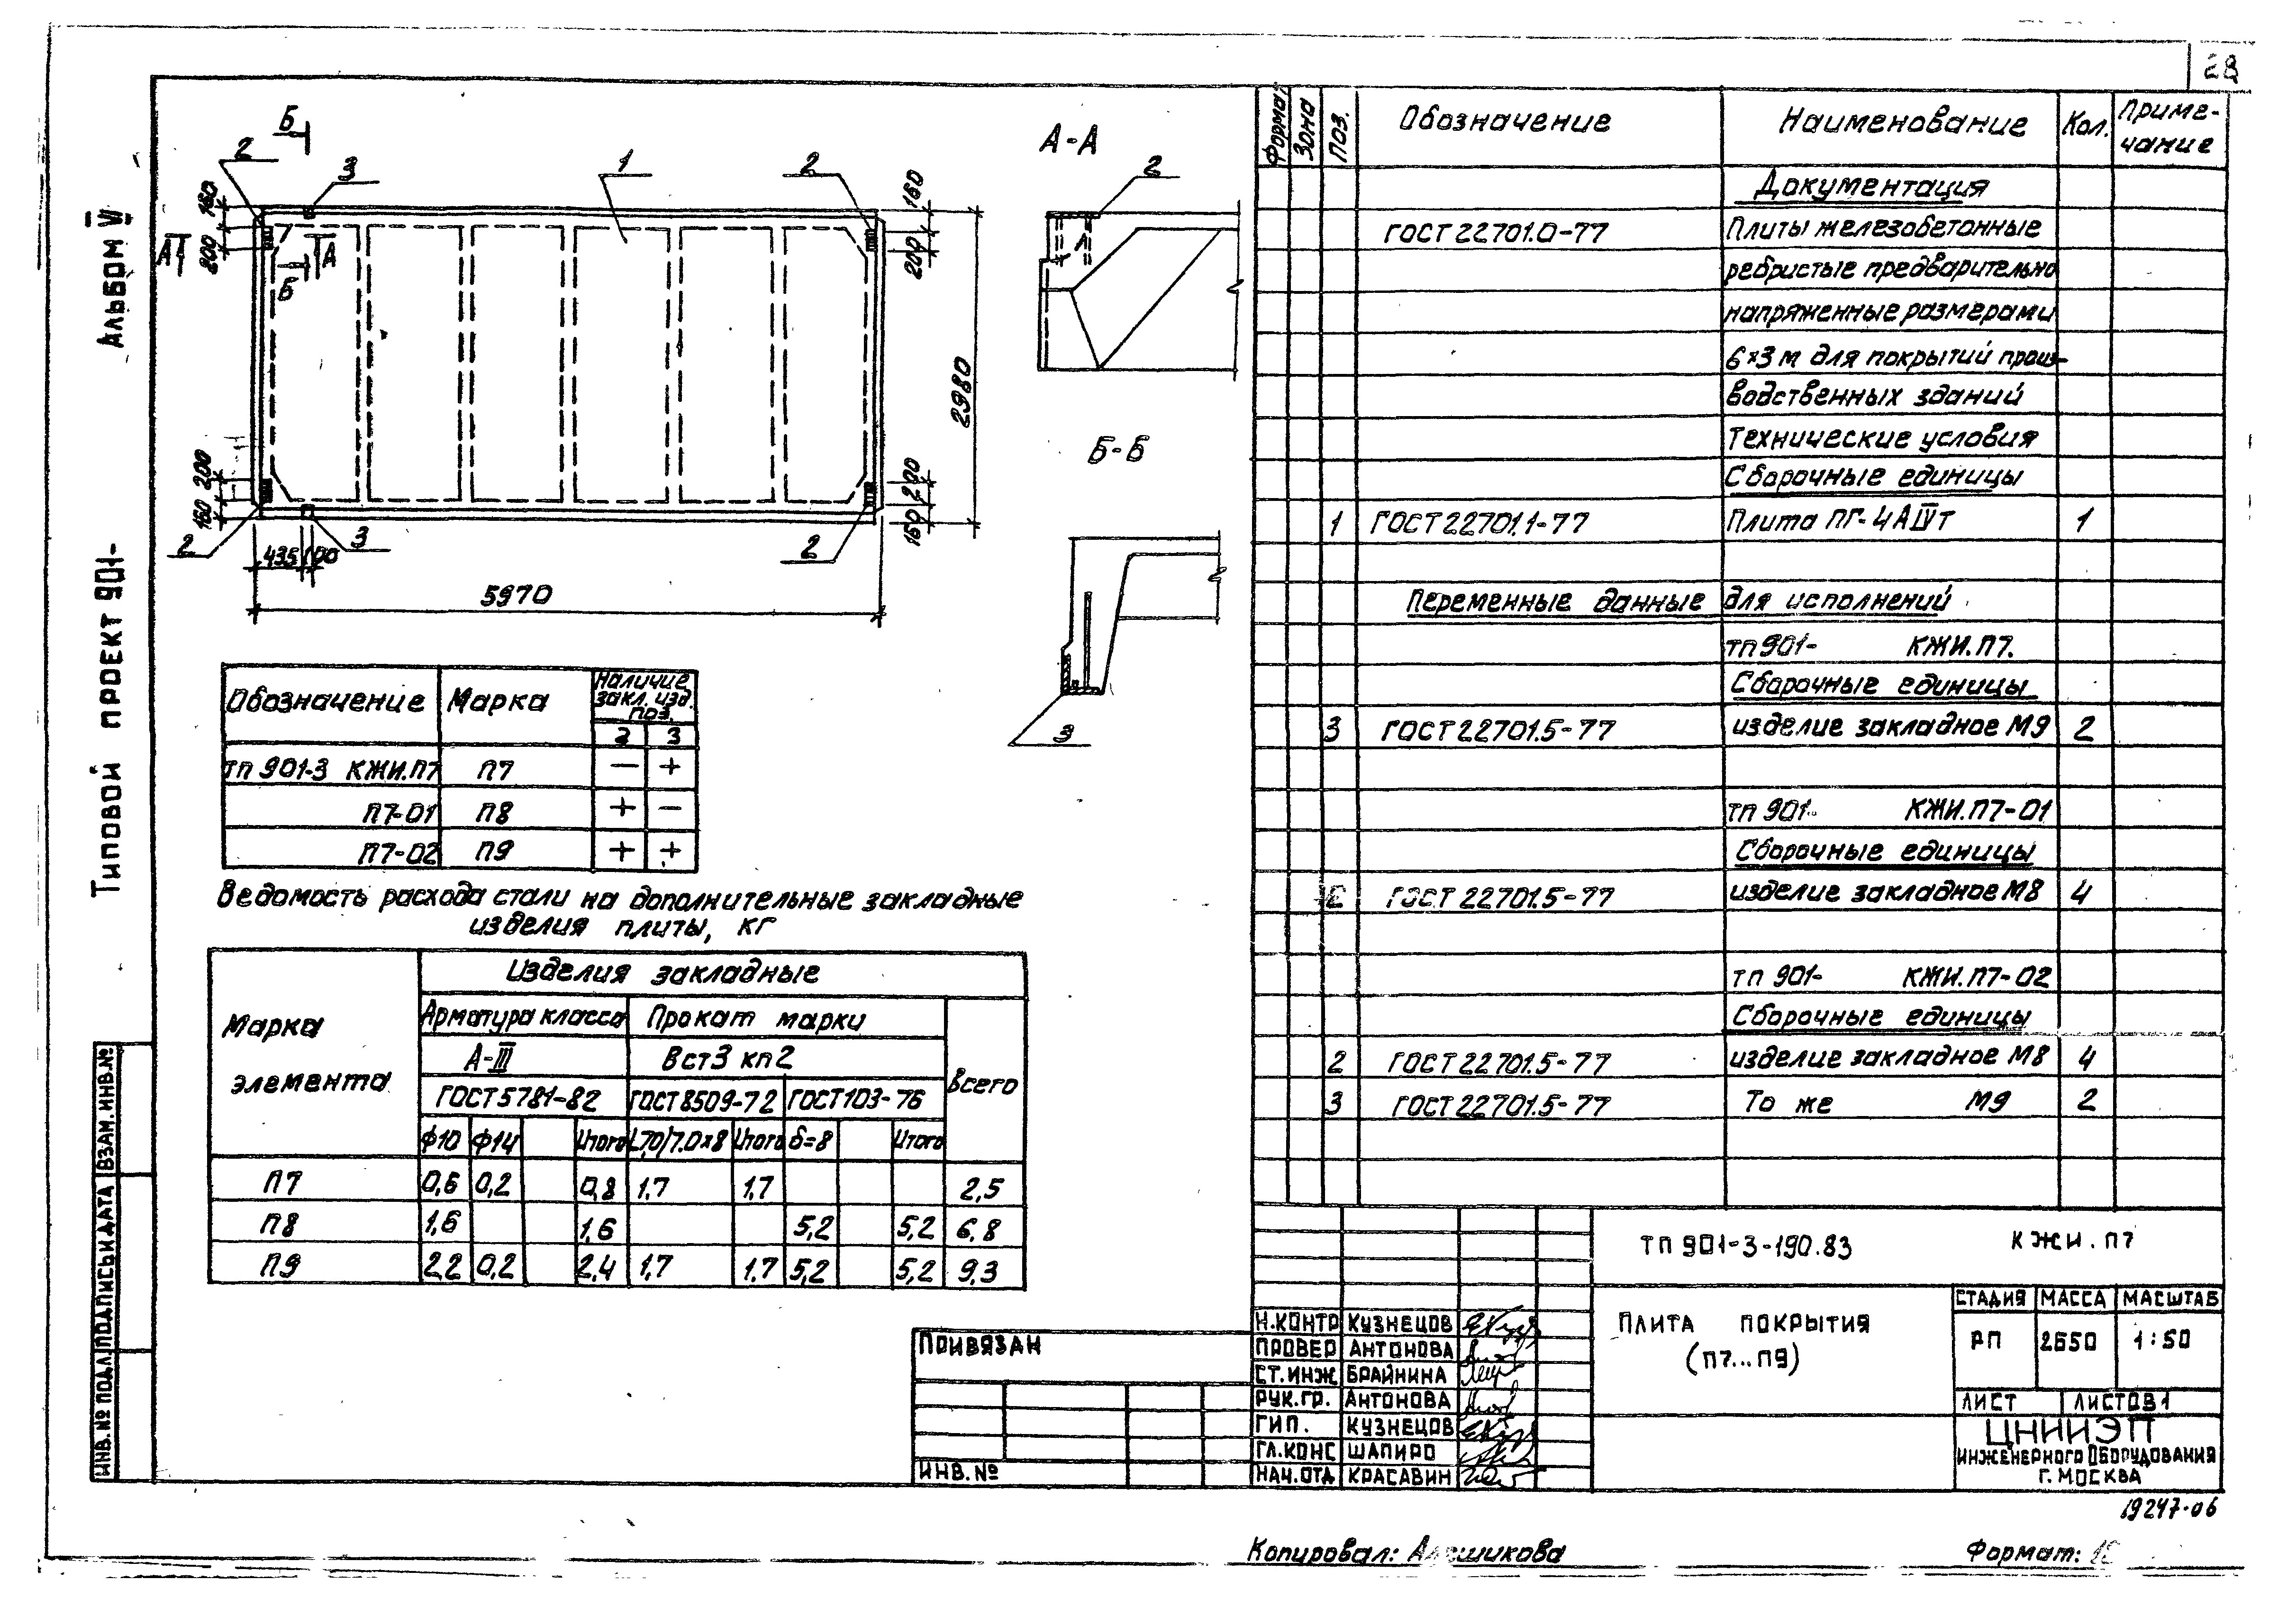 28
Альбом VI
Типовой проект 901-
Б
2
3
1
2
160
200
А
А
Б
160
200
2980
200
160
200
160
2
3
2
435
100
5970
А-А
2
Б-Б
3
Обозначение Марка Наличие закл. изд. поз.
2 3
тп 901-3 КЖИ.П7 П7 — +
П7-01 П8 + —
П7-02 П9 + +
Ведомость расхода стали на дополнительные закладные
изделия плиты, кг
Марка элемента
Изделия закладные
Арматура класса Прокат марки
А-III ВСт3 кп2
ГОСТ 5781-82 ГОСТ 8509-72 ГОСТ 103-76 Всего
ф10 ф14 Итого L70/70×8 Итого δ=8 Итого
П7 0,6 0,2 0,8 1,7 1,7 2,5
П8 1,6 1,6 5,2 5,2 6,8
П9 2,2 0,2 2,4 1,7 1,7 5,2 5,2 9,3
Формат Зона Поз. Обозначение Наименование Кол. Приме-
чание
Документация
ГОСТ 22701.0-77 Плиты железобетонные
ребристые предварительно
напряженные размерами
6×3 м для покрытий произ-
водственных зданий
Технические условия
Сборочные единицы
1 ГОСТ 22701.1-77 Плита ПГ-4АIVТ 1
Переменные данные для исполнений
тп 901- КЖИ.П7.
Сборочные единицы
3 ГОСТ 22701.5-77 изделие закладное М9 2
тп 901- КЖИ.П7-01
Сборочные единицы
2 ГОСТ 22701.5-77 изделие закладное М8 4
тп 901- КЖИ.П7-02
Сборочные единицы
2 ГОСТ 22701.5-77 изделие закладное М8 4
3 ГОСТ 22701.5-77 То же М9 2
ТП 901-3-190.83 КЖИ.П7
Н.КОНТР КУЗНЕЦОВ
ПРОВЕР АНТОНОВА
СТ.ИНЖ БРАЙНИНА
РУК.ГР. АНТОНОВА
ГИП. КУЗНЕЦОВ
ГЛ.КОНС ШАПИРО
НАЧ.ОТД КРАСАВИН
ПЛИТА ПОКРЫТИЯ
(П7...П9)
СТАДИЯ МАССА МАСШТАБ
РП 2650 1:50
ЛИСТ ЛИСТОВ 1
ЦНИИЭП
ИНЖЕНЕРНОГО ОБОРУДОВАНИЯ
Г. МОСКВА
ПРИВЯЗАН
ИНВ.№
ИНВ.№ ПОДЛ. ПОДПИСЬ И ДАТА ВЗАМ.ИНВ.№
19247-06
Копировал:
Формат: